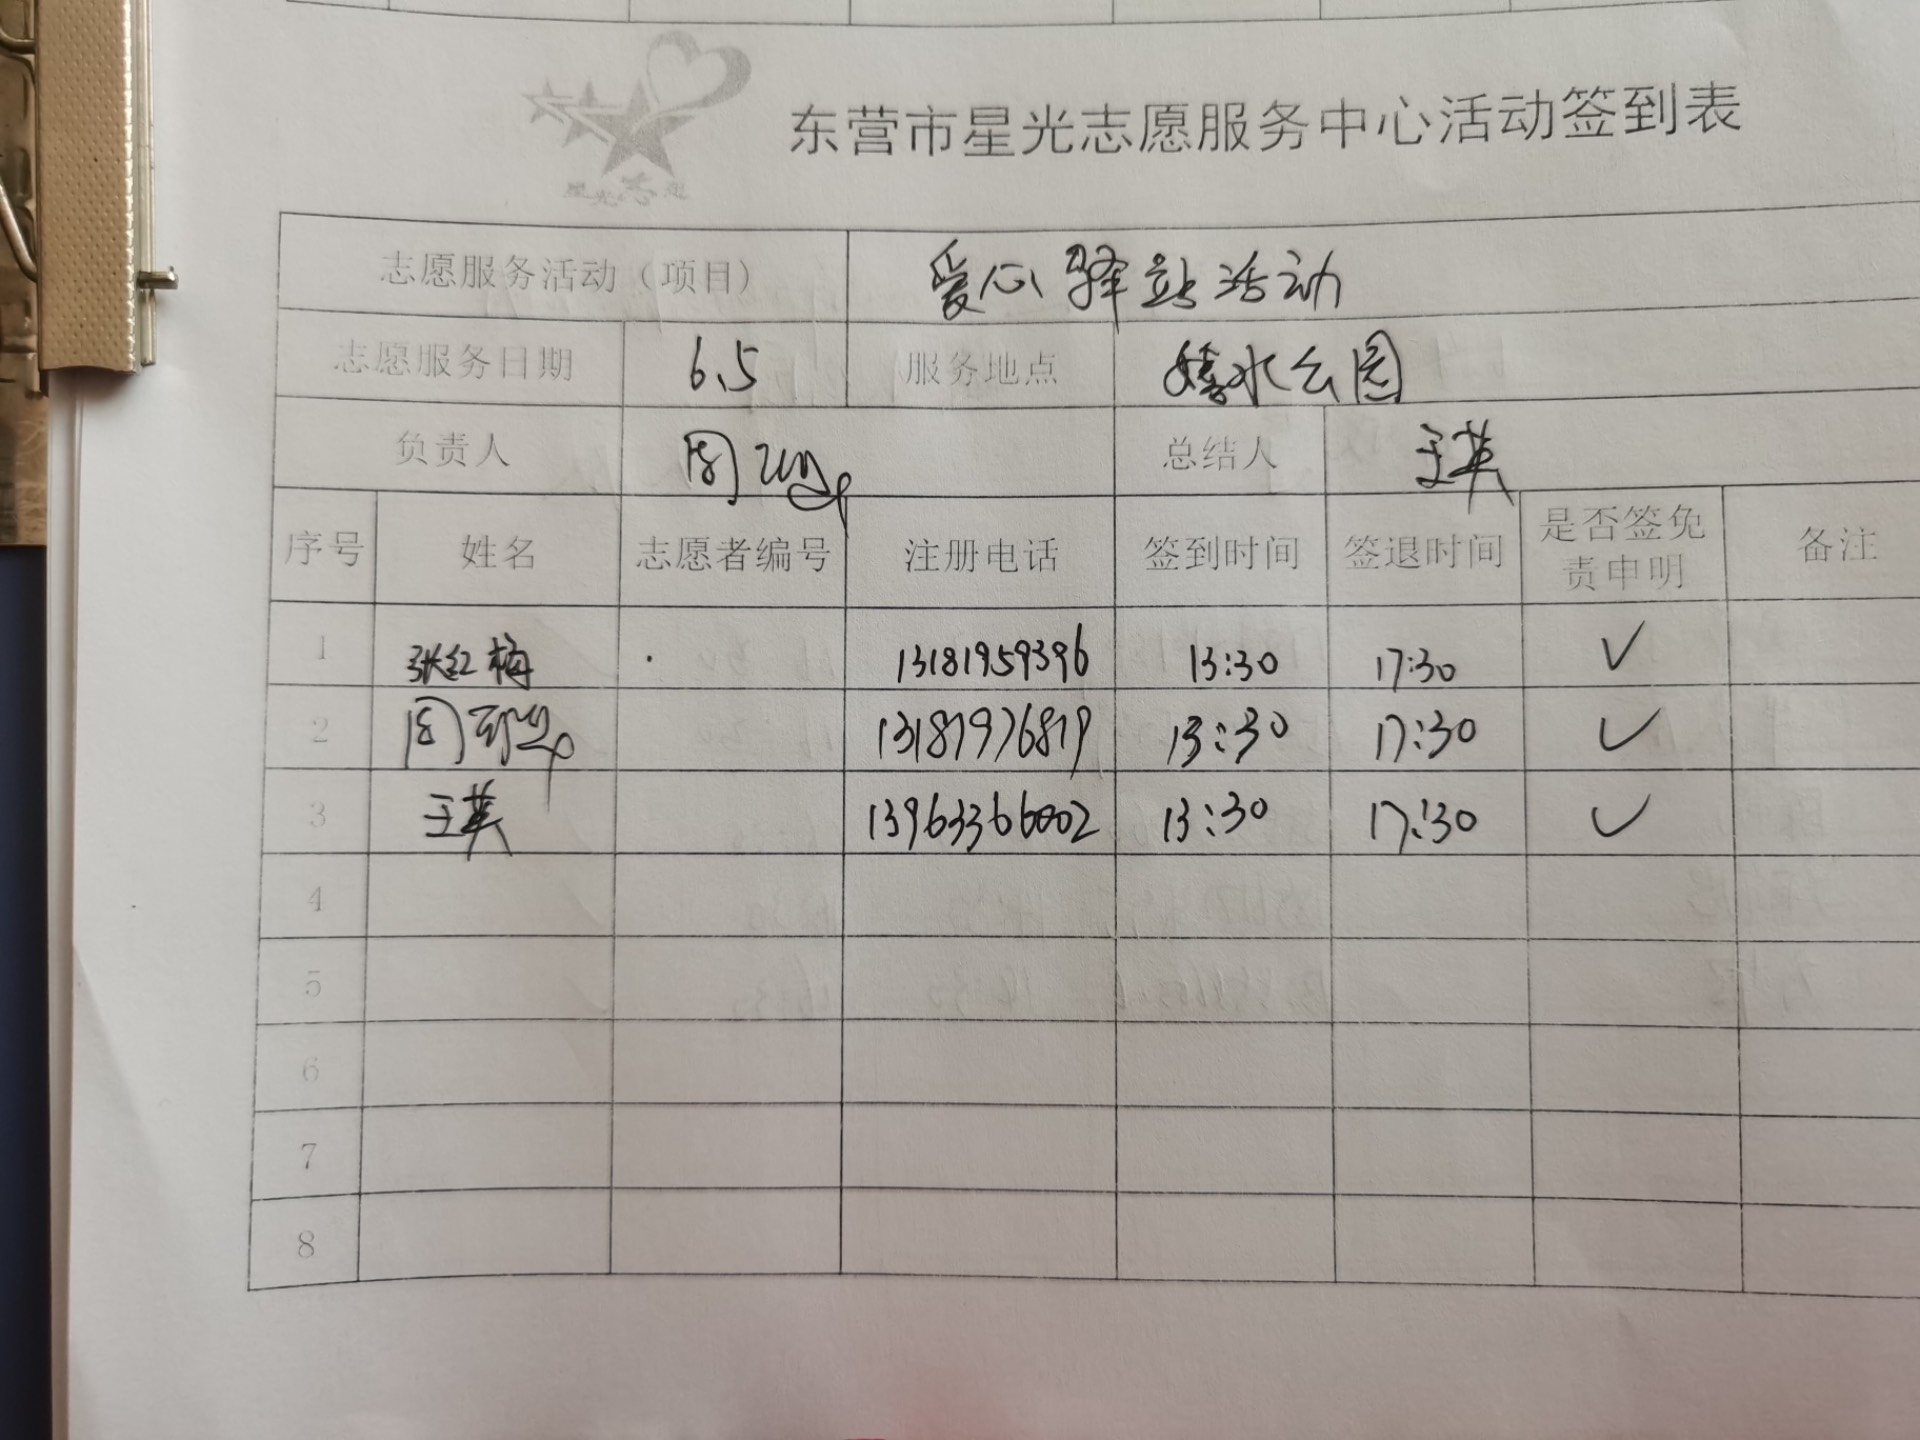 星光志愿
东营市星光志愿服务中心活动签到表
志愿服务活动（项目） 爱心驿站活动
志愿服务日期 6.5 服务地点 嬉水公园
负责人 周 总结人 王英
序号 姓名 志愿者编号 注册电话 签到时间 签退时间 是否签免责申明 备注
1 张红梅 13181959396 13:30 17:30 ✓
2 周 13181976819 13:30 17:30 ✓
3 王英 13963366002 13:30 17:30 ✓
4
5
6
7
8